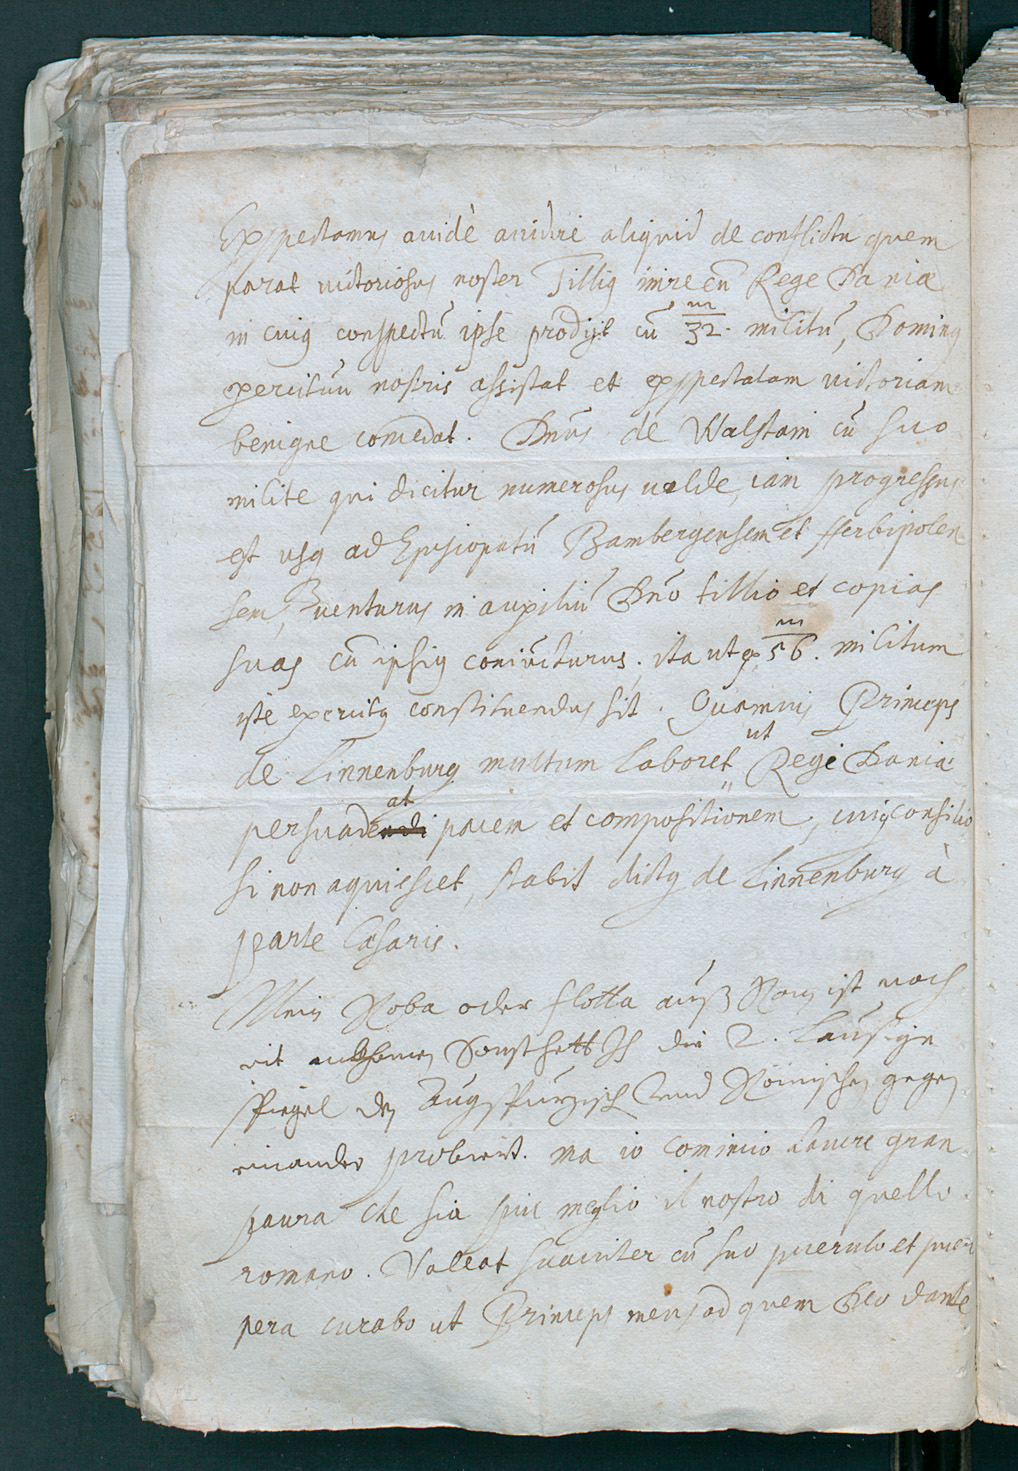 Exspectamus avidè audire aliquid de conflictu quem
parat victoriosus noster Tillig inire cũ Rege Daniæ
in cuiq conspectũ ipse prodijt cũ 32 m. militũ, Doming
exercitũu nostris assistat et exspectatam victoriam
benigne concedat. Dnũs de Walstain cũ suo
milite qui dicitur numerosus valde, iam progressus
est usq ad Episcopatũ Bambergensem et Herbipolen
sem, venturus in auxiliũ Dnõ Tillio et copias
suas cũ ipsiq coniũcturus, ita ut ex 56 m. militum
iste exercitq constituendus sit. Quamvis Princeps
de Linnenburg multum laboret ut Regi Daniæ
persuadeat pacem et compositionem, cuiq consilio
si non aquiescet, stabit dictq de Linnenburg à
parte Cæsaris.
Mein Roba oder flotta auß Rom ist noch
nit ankhomen, Sonst hett Ich die 2. lausige
spiegel den Augspurgisch und Römischen gegen
einander probiert. ma io comincio havere gran
paura che sia piu meglio il nostro di quello
romano. Valeat suaviter cũ suo puerulo et puer
pera curabo ut Princeps meus ad quem Deo dante